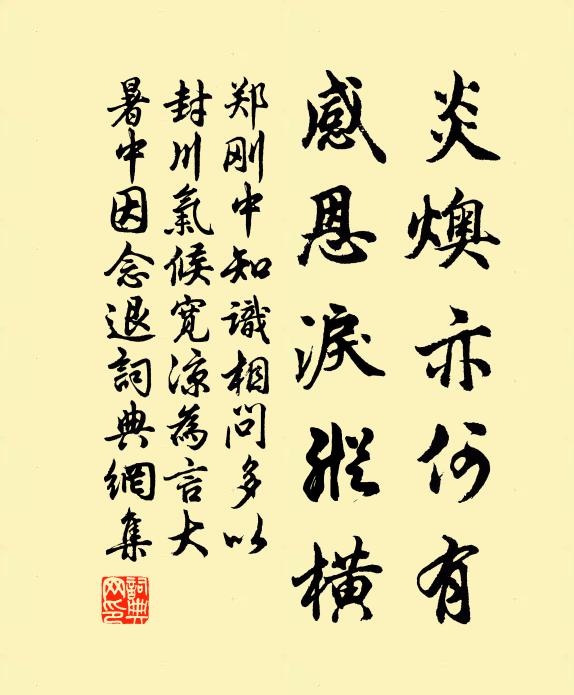 炎燠亦何有
感恩淚縱横
郑刚中知識相問多以
封川氣候寬凉為言大
暑中因念退詞典網集
詞典網印